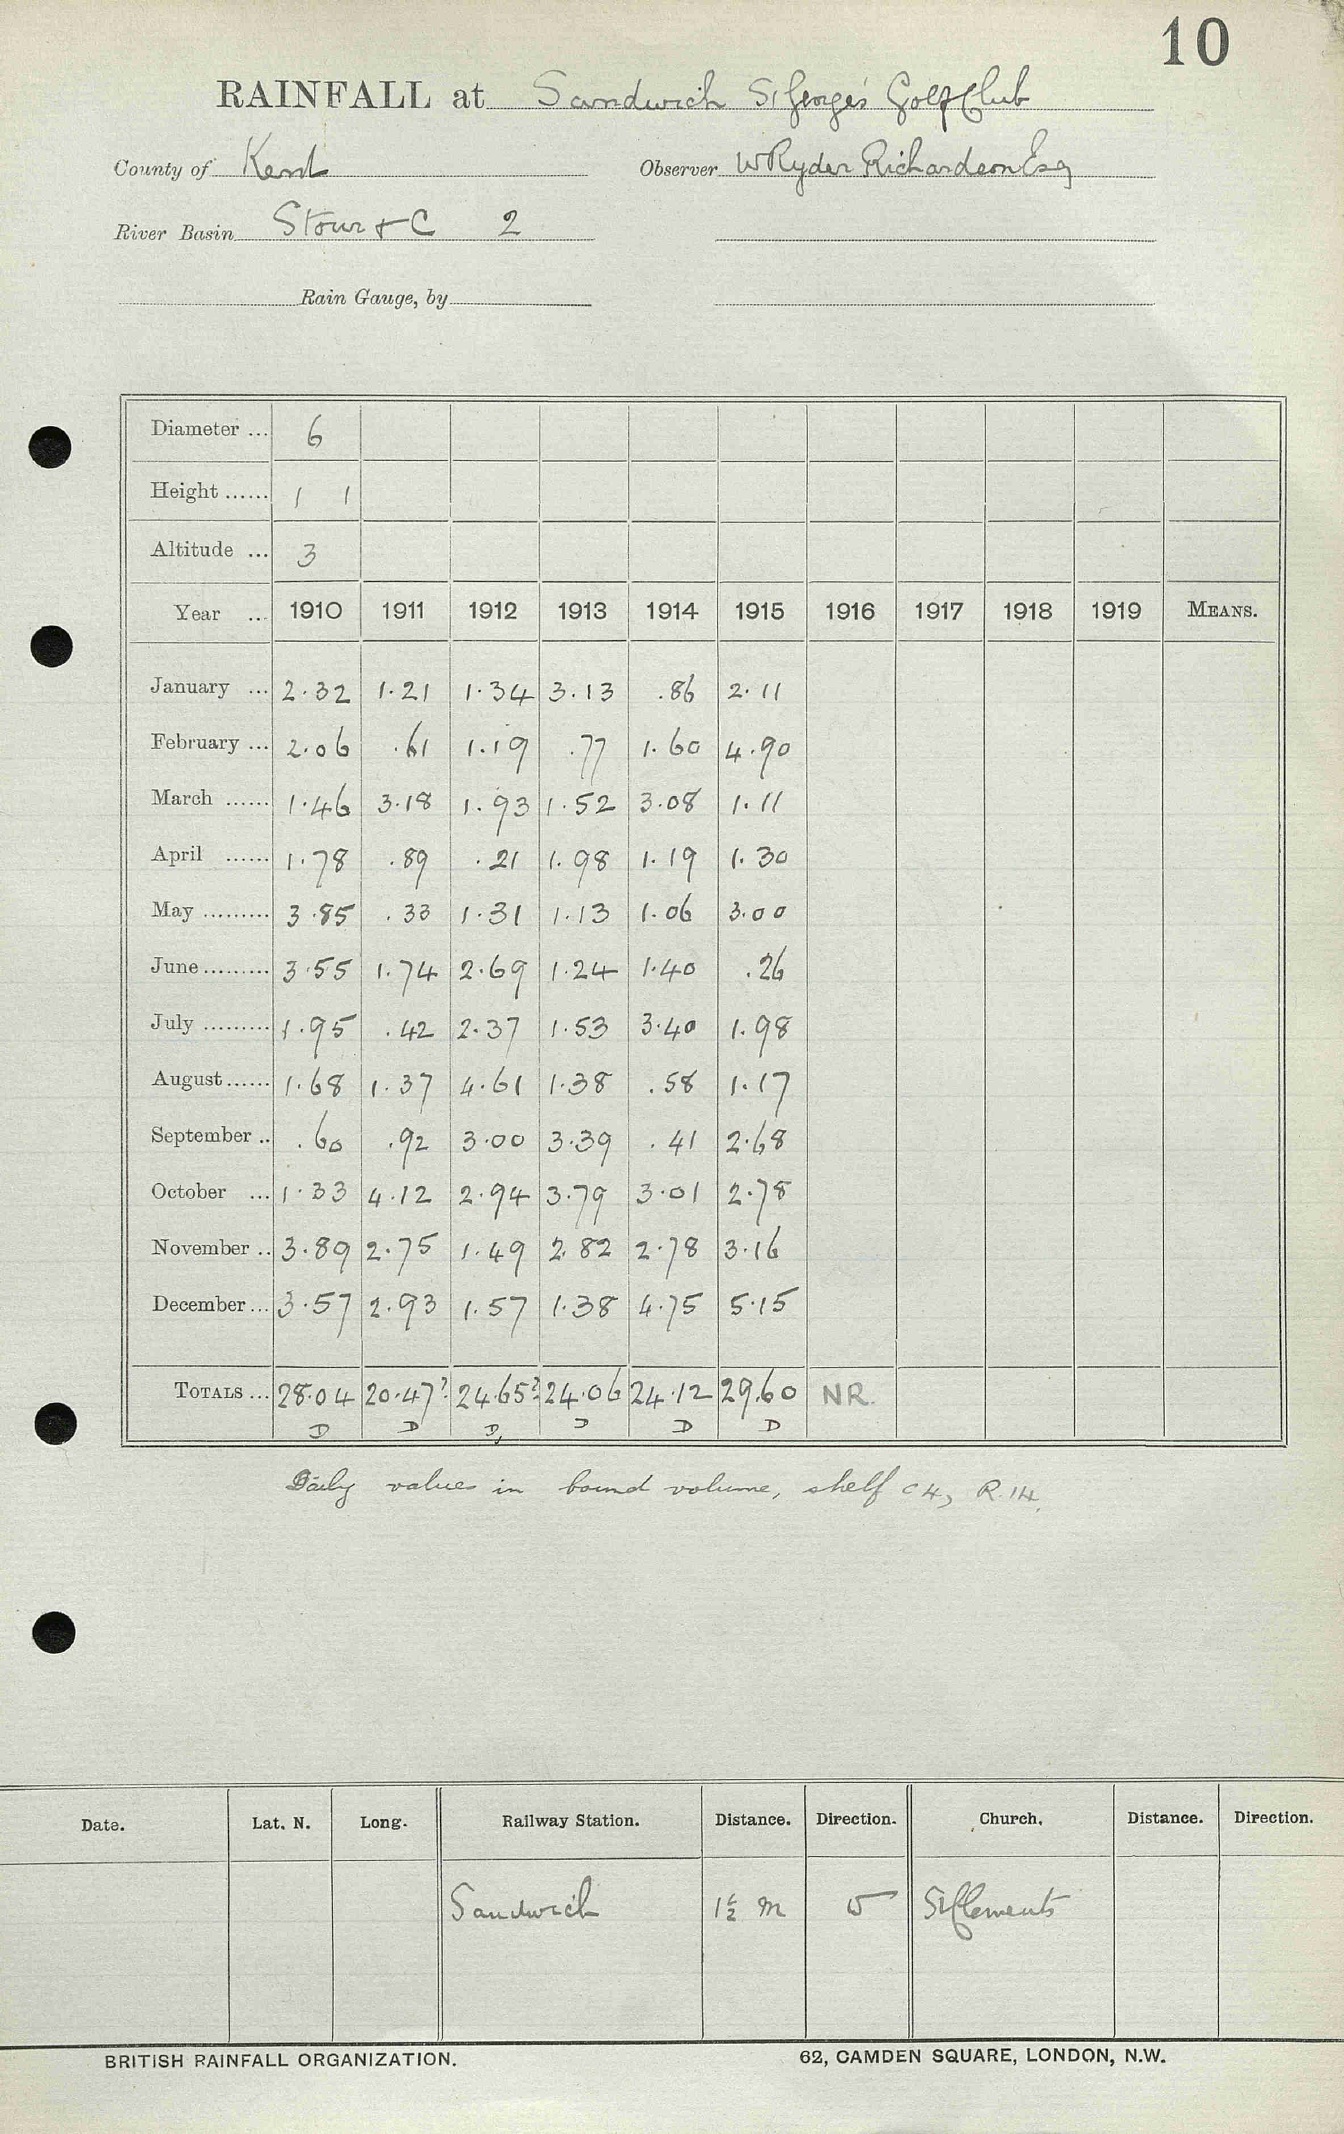 10
RAINFALL at Sandwich St George's Golf Club
County of Kent Observer W Ryder Richardson Esq
River Basin Stour & C 2
Rain Gauge, by
Diameter ... 6
Height ...... 1 1
Altitude ... 3
Year ... 1910 1911 1912 1913 1914 1915 1916 1917 1918 1919 MEANS.
January ... 2.32 1.21 1.34 3.13 .86 2.11
February ... 2.06 .61 1.19 .77 1.60 4.90
March ...... 1.46 3.18 1.93 1.52 3.08 1.11
April ...... 1.78 .89 .21 1.98 1.19 1.30
May ......... 3.85 .33 1.31 1.13 1.06 3.00
June ......... 3.55 1.74 2.69 1.24 1.40 .26
July ......... 1.95 .42 2.37 1.53 3.40 1.98
August ...... 1.68 1.37 4.61 1.38 .58 1.17
September .. .60 .92 3.00 3.39 .41 2.68
October ... 1.33 4.12 2.94 3.79 3.01 2.78
November .. 3.89 2.75 1.49 2.82 2.78 3.16
December ... 3.57 2.93 1.57 1.38 4.75 5.15
TOTALS ... 28.04 20.47? 24.65? 24.06 24.12 29.60 NR.
D D D, D D D
Daily values in bound volume, shelf C4, R.14.
Date. Lat. N. Long. Railway Station. Distance. Direction. Church. Distance. Direction.
Sandwich 1½ m W St Clements
BRITISH RAINFALL ORGANIZATION. 62, CAMDEN SQUARE, LONDON, N.W.